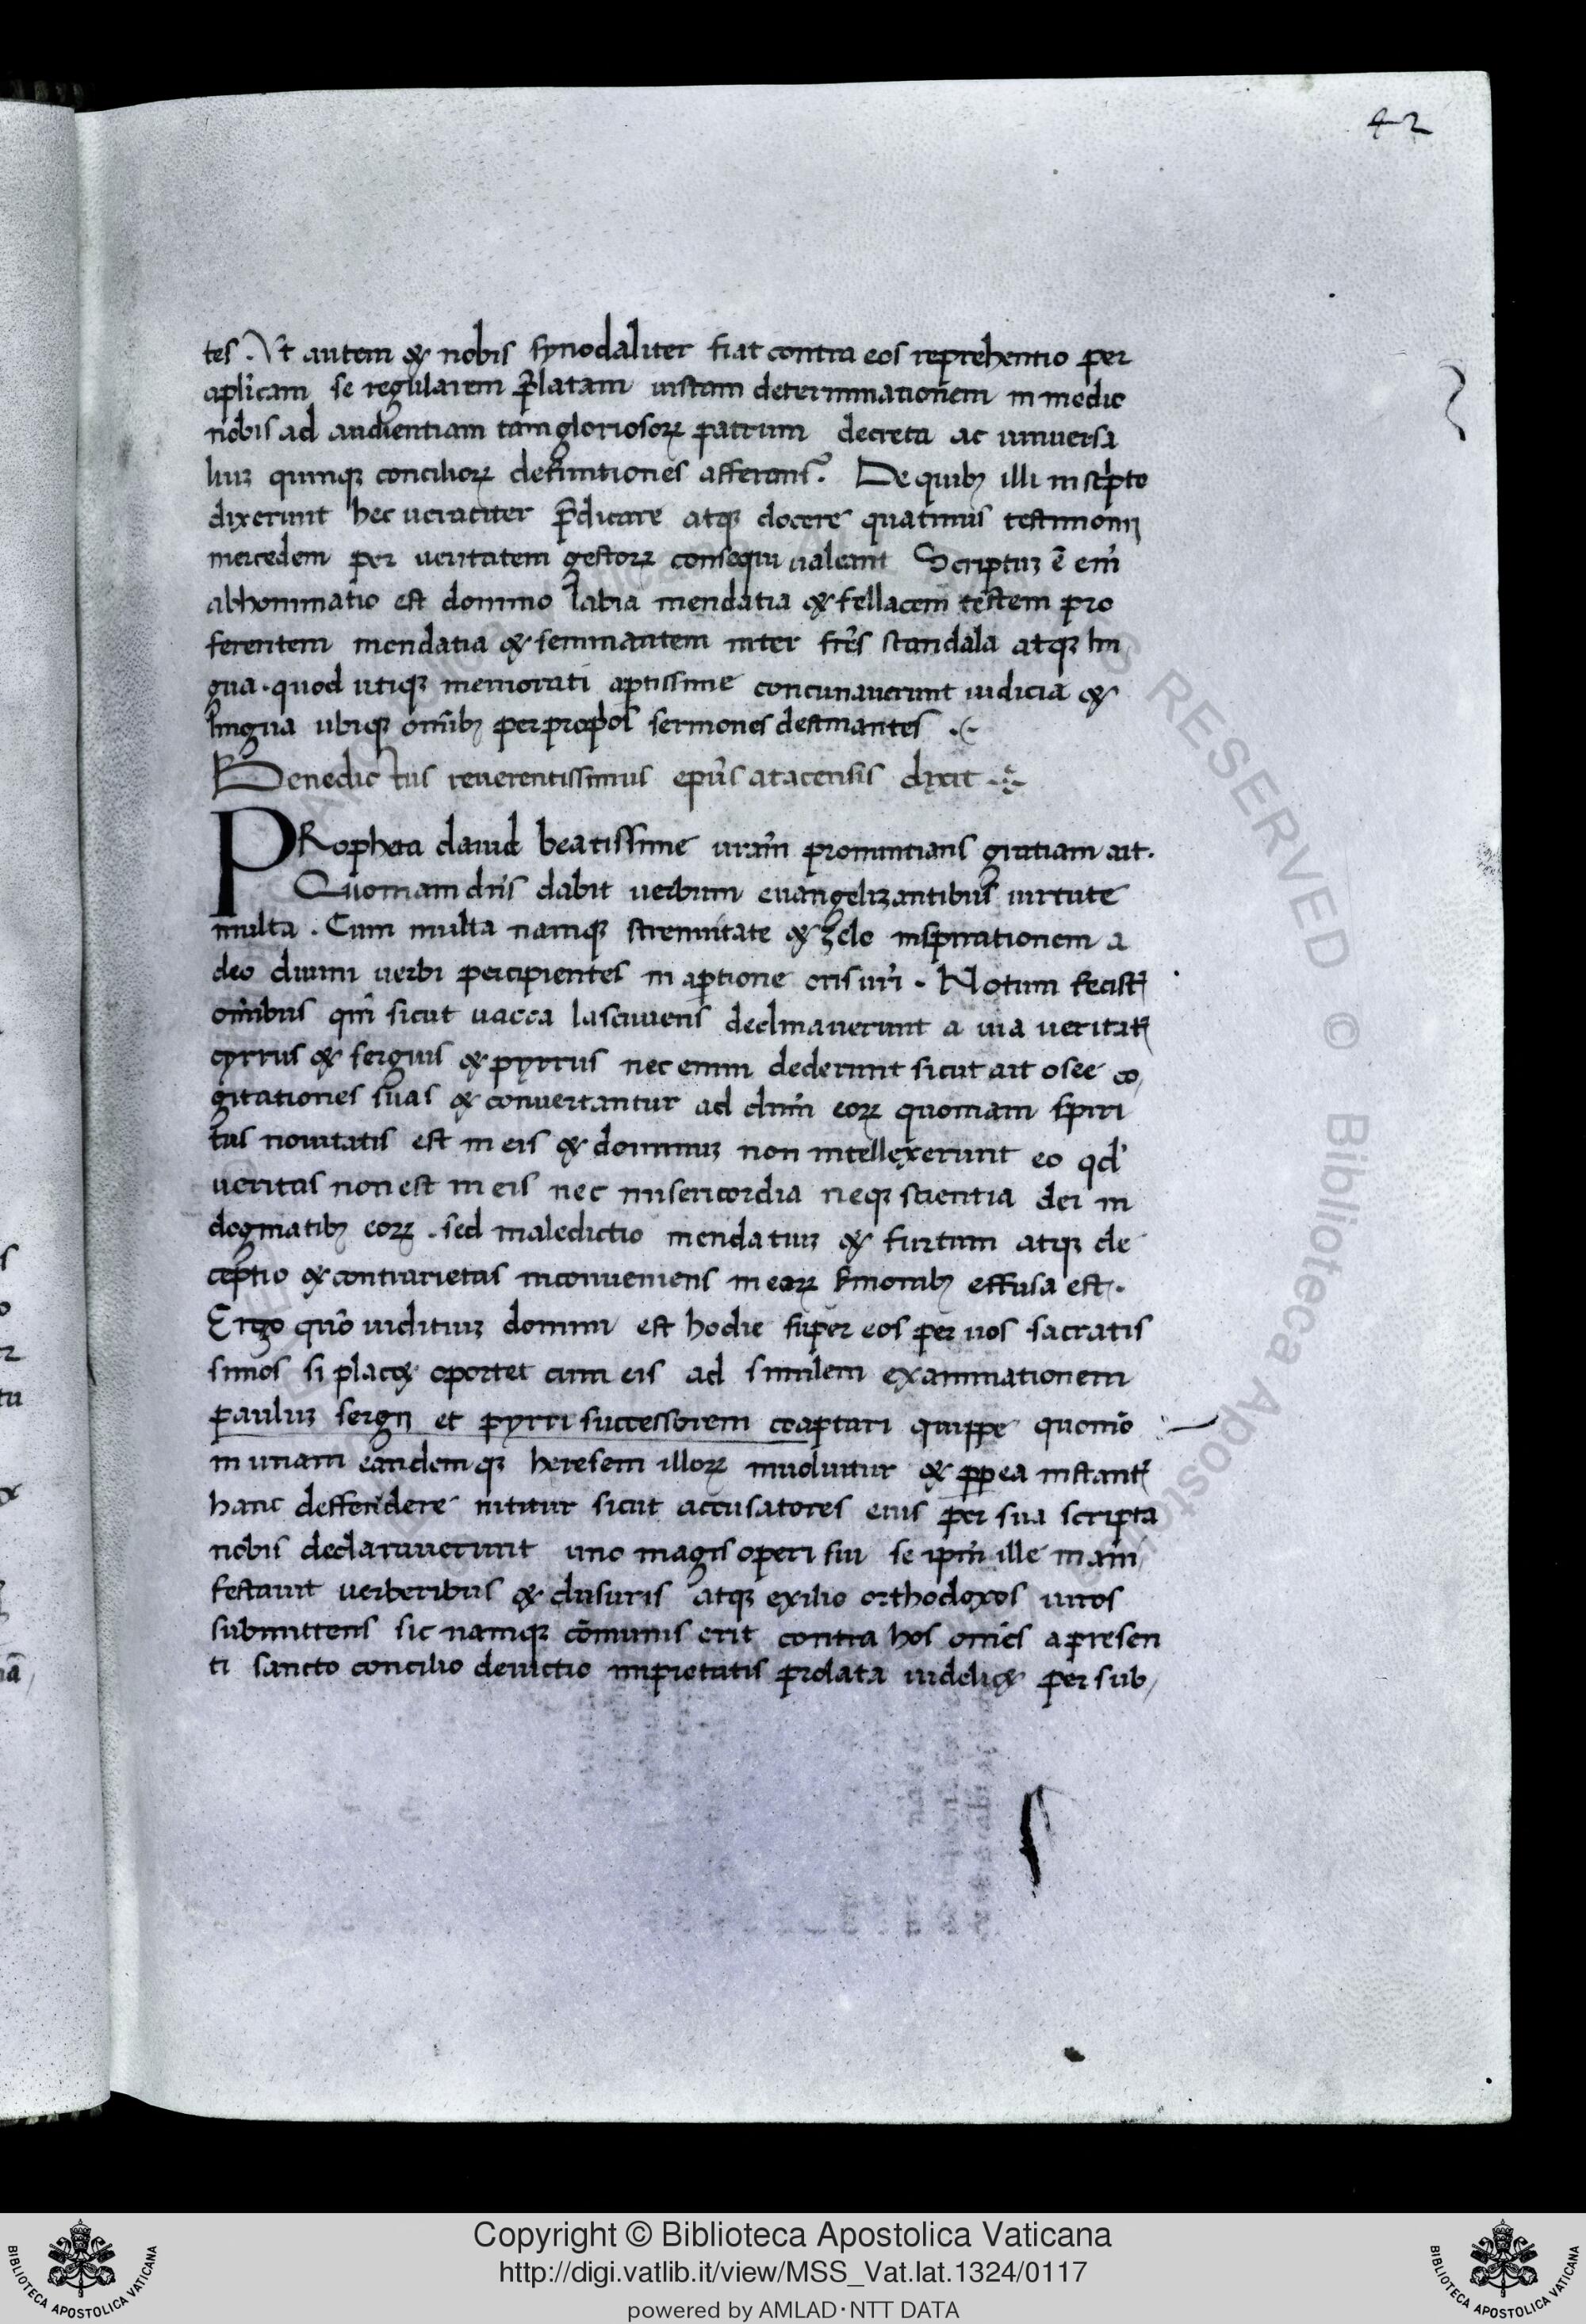 42
tes. Vt autem & nobis synodaliter fiat contra eos reprehentio per
apl'icam se regularem p̄latam iustam determinationem in medio
nobis ad audientiam tam gloriosoꝝ patrum decreta ac uniuersa
liuꝫ quinqꝫ concilioꝝ defintiones afferant. De quibꝫ illi in sc'pto
dixerunt hec ueraciter p̄dicare atqꝫ docere quatinus testimonij
mercedem per ueritatem gestoꝝ consequi ualeant Scriptuꝫ ē em̄
abhominatio est domino labia mendatia & fellacem testem pro
ferentem mendatia & seminantem inter fr̄es scandala atqꝫ lin
gua. quod utiqꝫ memorati aptissime concunauerunt iudicia &
lingua ubiqꝫ omībꝫ per propōs sermones destinantes .
Benedictus reuerentissimus ep̄us atacensis dixit
PRopheta dauid beatissime uram̄ pronuntians gratiam ait.
Quoniam dn̄s dabit uerbum euangelizantibus uirtute
multa. Cum multa namqꝫ strenuitate & zelo inspirationem a
deo diuini uerbi percipientes in aptione oris ur̄i. Notum fecistꝭ
om̄ibus qui sicut uacca lasciuiens declinauerunt a uia ueritatꝭ
cyrrus & sergius & pyrrus nec enim dederunt sicut ait osee co,
gitationes suas & conuertantur ad dum̄ eoꝝ quoniam spiri
tus nouitatis est in eis & dominuꝫ non intellexerunt eo qd'
ueritas non est in eis nec misericordia neqꝫ scientia dei in
dogmatibꝫ eoꝝ. sed maledictio mendatiuꝫ & furtum atqꝫ de
ceptio & contrarietas inconueniens in eaꝝ s̄monibꝫ effusa est.
Ergo quō iuditiuꝫ domini est hodie super eos per uos sacratis
simos si plac& oportet cum eis ad similem examinationem
pauluꝫ sergij et pyrri successorem coaptari quippe quoniō
in unam eandemqꝫ heresem illoꝝ inuoluitur & ꝓꝑ ea instantꝭ
hanc deffendere nititur sicut accusatores eius per sua scripta
nobis declarauerunt uno magis operi sui se ipm̄ ille mani,
festauit uerberibus & clusuris atqꝫ exilio orthodoxos uiros
submittens sic namqꝫ cōmunis erit contra hos omēs a presen
ti sancto concilio deuictio impietatis prolata uidelic& per sub,
Copyright © Biblioteca Apostolica Vaticana
http://digi.vatlib.it/view/MSS_Vat.lat.1324/0117
powered by AMLAD·NTT DATA